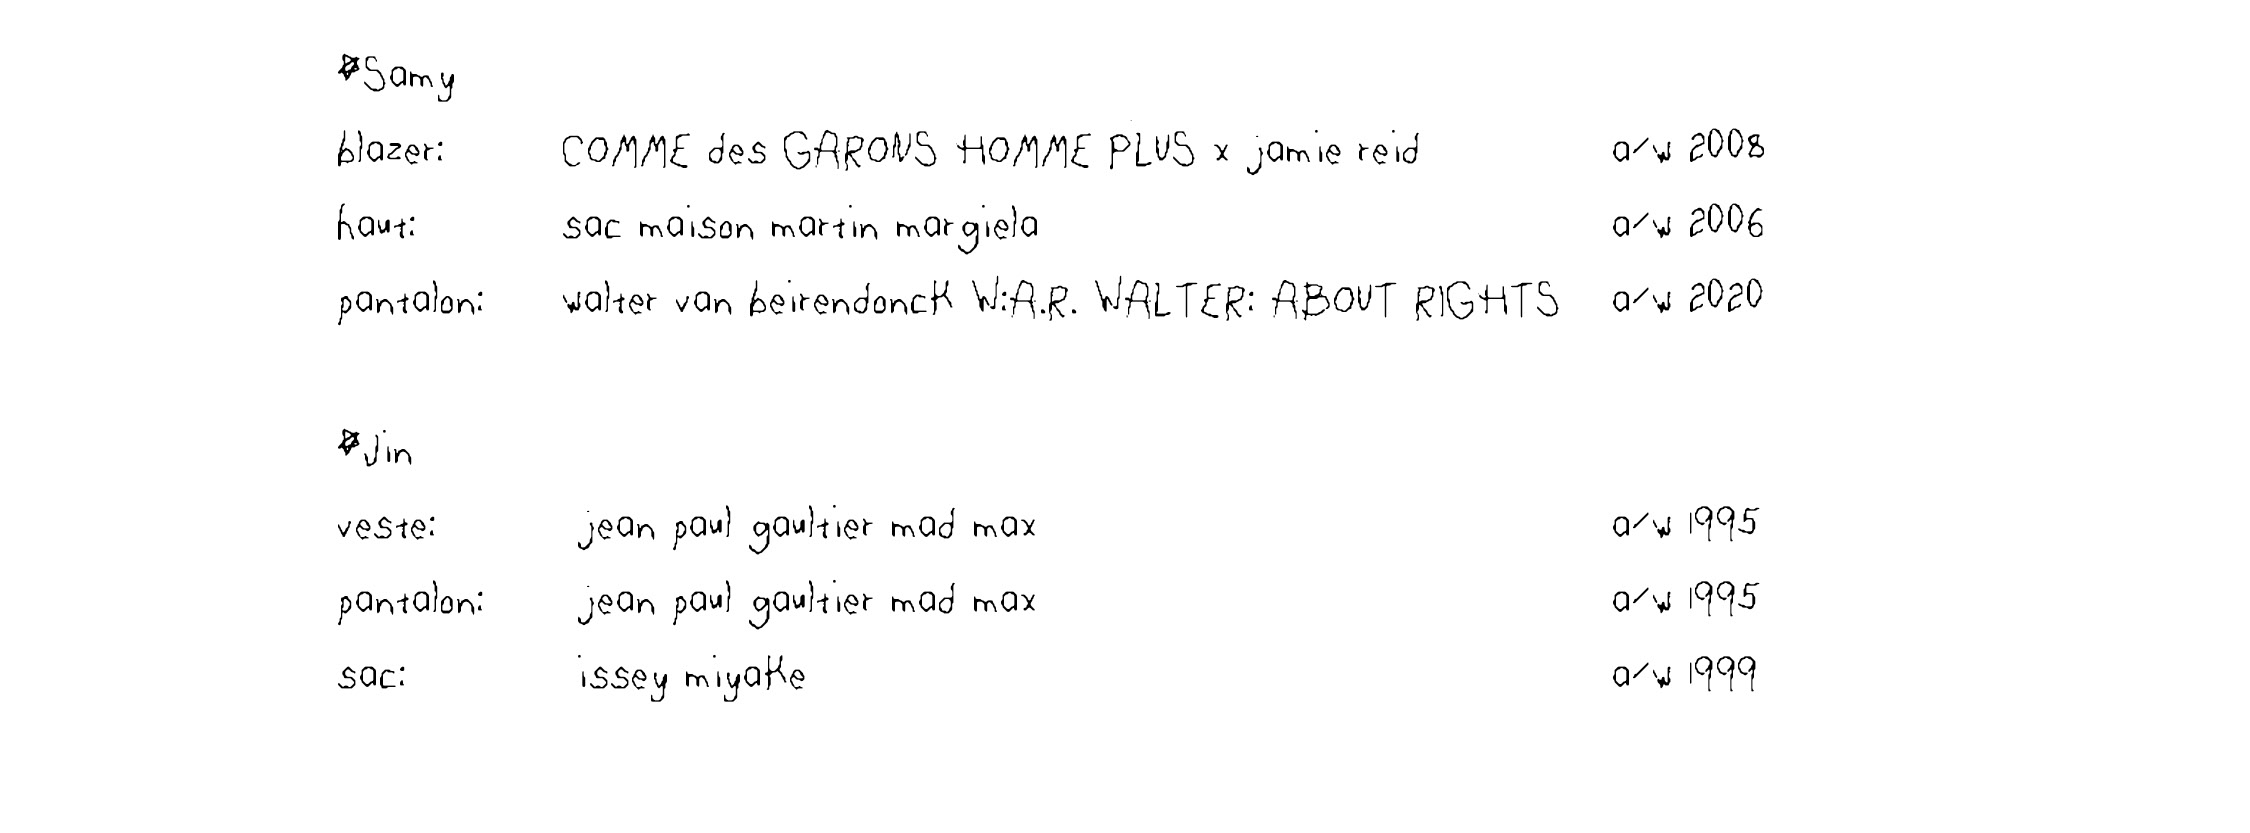 ☆Samy
blazer: COMME des GARONS HOMME PLUS x jamie reid a/w 2008
haut: sac maison martin margiela a/w 2006
pantalon: walter van beirendonck W:A.R. WALTER: ABOUT RIGHTS a/w 2020
☆Jin
veste: jean paul gaultier mad max a/w 1995
pantalon: jean paul gaultier mad max a/w 1995
sac: issey miyake a/w 1999